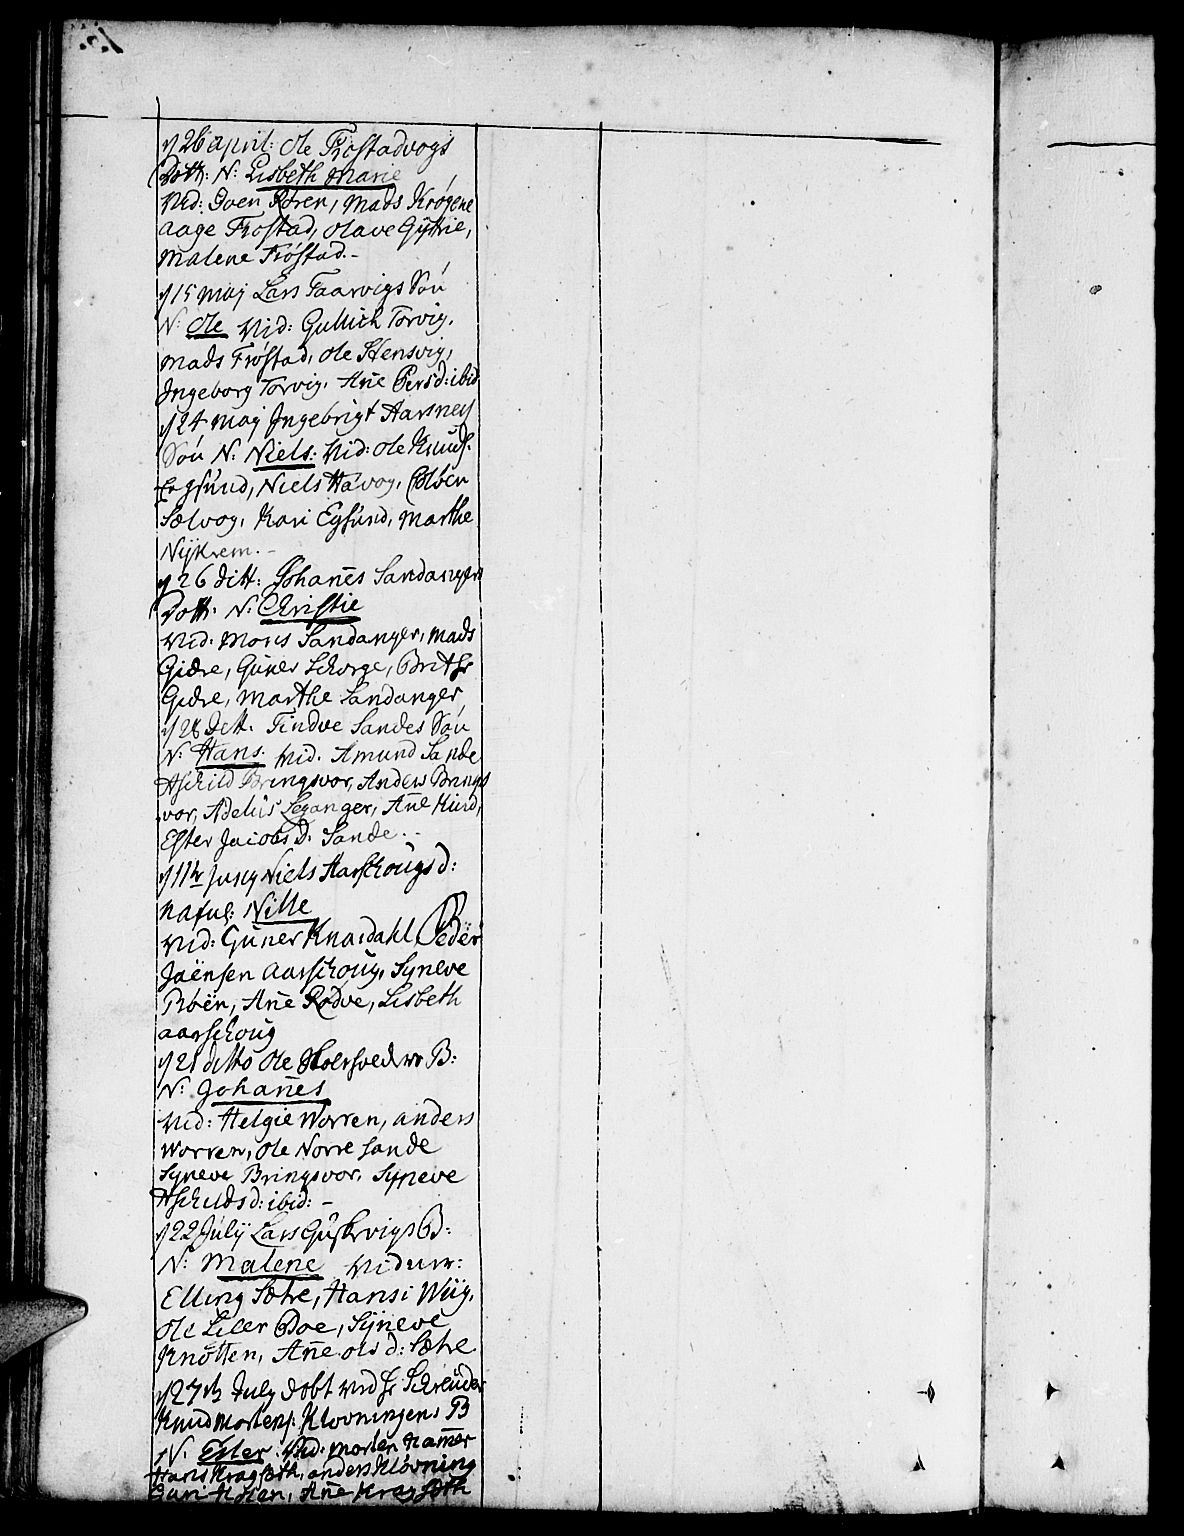 d 26 april: Ole Frostadvogs
Dott: N: Lisbeth Marie
Vid: Sven Røren, Mads Krøgene
aage Frostad, Olave Gÿtrie,
Malene Frøstad.-
d 15 Maj Lars Taarvigs Søn
N: Ole Vid: Gullich Torvig,
Mads Frøstad, Ole Stensvig,
Ingeborg Torvig, Añe Persd: ibid
d 24 Maj Ingebrigt Aarsnes
Søn N: Niels: Vid: Ole Knuds.
Egsund, Niels Havog,
Sælvog, Kari Egsund, Marthe
Nÿkrem.-
d 26 ditt: Johañes Sandangers
Dott: N: Christie
Vid: Mons Sandanger, Mads
Giære, Guner Schorge, Brithe
Giære, Marthe Sandanger
d 28 Ditt. Findve Sandes Søn
N: Hans. Vid. Amund Sande
Aschild Bringsvor, Anders Brings
vor, Adelus Leganger, Añe Hund,
Ester Jacobs D. Sande.-
d 11te Juny Niels Aarschougs d:
N: Nille
Vid: Guner Knardahl, Peder
Jaënsen Aarschoug, Syneve
Røën, Añe Rødve, Lisbeth
aarschoug
d 21 ditto Ole B:
N: Johañes
Vid: Helgie Worren, anders
Worren, Ole Norre sande
Syneve Bringsvor, Syneve
Aschilds d: ibid: -
d 22 Julÿ Lars Guskevigs B:
N: Malene Viduer:
Elling Sætre, Hans i Wiig,
Ole Liler Boe, Sÿneve
Knotten, Añe ols d: Sætre
d 27th July døbt ved Hr Schreuder
Knud Mortens: Kløvningens B
N. Ester. Vid: Morten Kamer
Hans Krag Røth, anders Kløvning
Guri, Añe Krag Røth